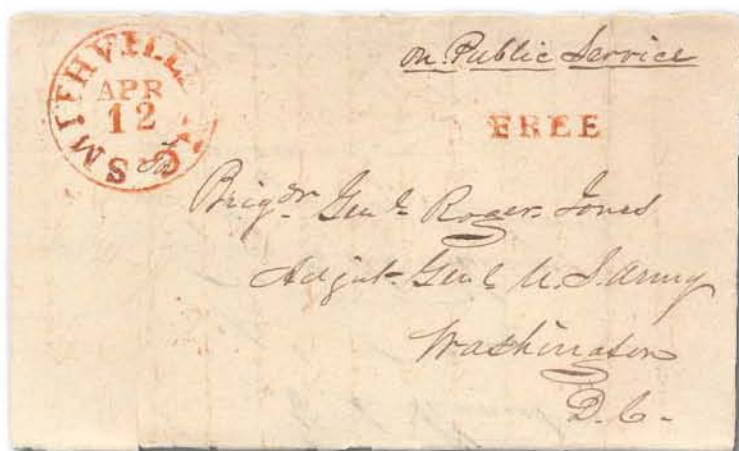 SMITHVILLE
APR
12
on Public Service
FREE
Brigdr Genl Roger Jones
Adjut. Genl U.S. Army
Washington
D.C.